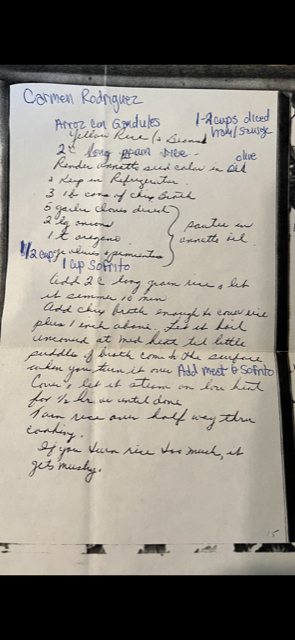 Carmen Rodriguez
Arroz con Gandules
1-2 cups diced
ham/sausage
Yellow Rice / & Beans
2c long grain rice -
olive
Render annatto seed color in oil
& Keep in Refrigerator
3 16 cans of chix Broth
5 garlic cloves diced
2 lg onions
saute in
1 t oregano
annatto oil
1/2 cup olives & pimentos
1 cup Sofrito
Add 2c long grain rice & let
it simmer 10 min
Add chix broth enough to cover rice
plus 1 inch above. Let it boil
uncovered at med heat til little
puddles of broth come to the surface
when you turn it over Add meat & Sofrito
Cover & let it steam on low heat
for 1/2 hr or until done
Turn rice over half way thru
cooking.
If you turn rice too much, it
gets mushy.